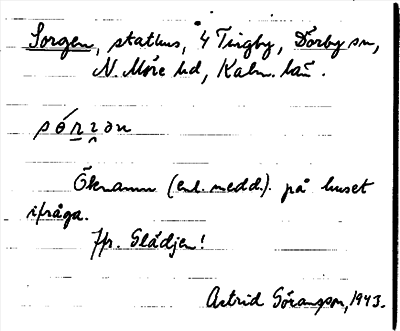 Sorgen, stathus, 4 Tingby, Dörby sn,
N. Möre hd, Kalm. län.
Öknamn (enl. medd.). på huset
ifråga.
Jfr. Glädjen!
Astrid Göransson, 1943.